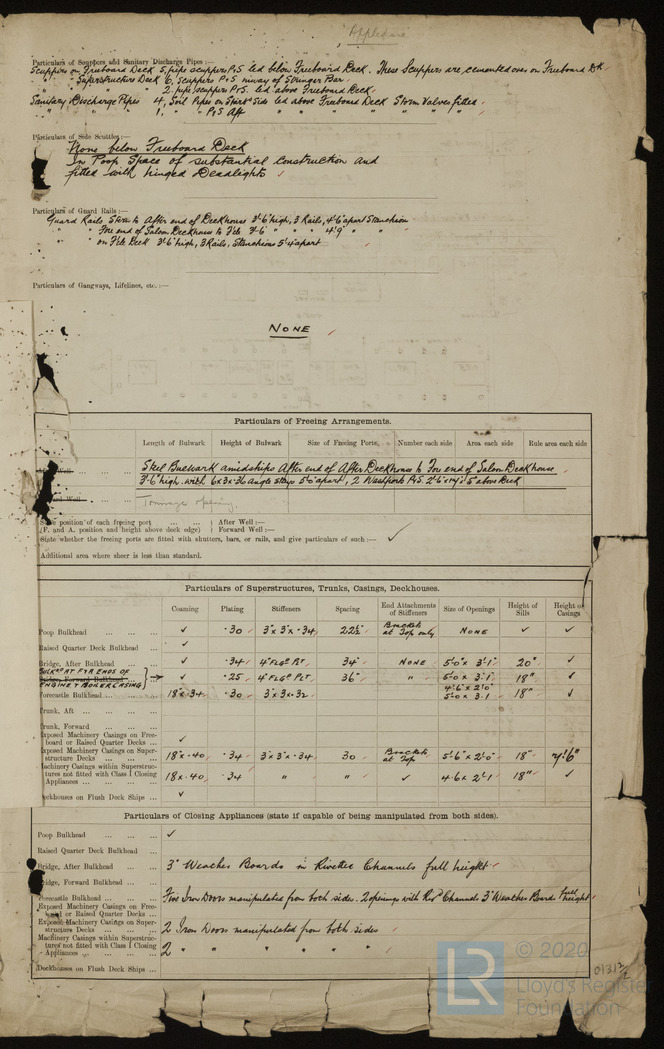 Applegate
Particulars of Scuppers and Sanitary Discharge Pipes :—
Scuppers on Freeboard Deck 5, pipe scuppers P&S led below Freeboard Deck. These Scuppers are cemented over on Freeboard Dk.
" " Superstructure Deck 6, scuppers P&S inway of Stringer Bar.
" " " " 2. pipe scuppers P&S. led above Freeboard Deck.
Sanitary Discharge Pipes 4, Soil Pipes on Starbd Side led above Freeboard Deck Storm Valves fitted.
1, " " P&S Aft " " " " " "
Particulars of Side Scuttles :—
None below Freeboard Deck
In Poop Space of substantial construction and
fitted with hinged Deadlights
Particulars of Guard Rails :—
Guard Rails Stern to After end of Deckhouse 3'-6" high, 3 Rails, 4'-6" apart Stanchions
" " Fore end of Saloon Deckhouse to F'cle 3'-6" " " " 4'-9" " "
" " on F'cle Deck 3'-6" high, 3 Rails, Stanchions 5'-4" apart
Particulars of Gangways, Lifelines, etc. :—
NONE
Particulars of Freeing Arrangements.
Length of Bulwark Height of Bulwark Size of Freeing Ports Number each side Area each side Rule area each side
Well Steel Bulwark amidships After end of After Deckhouse to For end of Saloon Deckhouse
3'-6" high with 6 x 3 x .36 angle stays 5'-6" apart, 2 Washports P&S
Well Tonnage opening.
State position of each freeing port ... ... After Well :—
(F. and A. position and height above deck edge) Forward Well :—
State whether the freeing ports are fitted with shutters, bars, or rails, and give particulars of such :— ✓
Additional area where sheer is less than standard.
Particulars of Superstructures, Trunks, Casings, Deckhouses.
Coaming Plating Stiffeners Spacing End Attachments of Stiffeners Size of Openings Height of Sills Height of Casings
Poop Bulkhead ... ... ... ✓ .30 3" x 3" x .34 22½" Brackets at Top only NONE ✓ ✓
Raised Quarter Deck Bulkhead ✓
Bridge, After Bulkhead ... ... ✓ .34 4" FLGD PLT. 34" NONE 5'0" x 3'1" 20" ✓
BULKHD AT F & A ENDS OF
Bridge, Forward Bulkhead ... → ✓ .25 4" FLGD PLT. 36" " 5'0 x 3'1" 18" ✓
ENGINE & BOILER CASING
Forecastle Bulkhead ... ... ... 18" x .34 .30 3" x 3" x .32 4'6" x 2'0" 5'0 x 3.1 18" ✓
Trunk, Aft ... ... ... ...
Trunk, Forward ... ... ...
Exposed Machinery Casings on Free-
board or Raised Quarter Decks ... ✓
Exposed Machinery Casings on Super-
structure Decks ... ... ... 18" x .40 .34 3" x 3" x .34 30 Brackets at Top 5'6" x 2'0" 18" 7'6"
Machinery Casings within Superstruc-
tures not fitted with Class 1 Closing
Appliances ... ... ... 18 x .40 .34 " " ✓ 4'6 x 2'1 18" ✓
Deckhouses on Flush Deck Ships ... ✓
Particulars of Closing Appliances (state if capable of being manipulated from both sides).
Poop Bulkhead ... ... ... ✓
Raised Quarter Deck Bulkhead ...
Bridge, After Bulkhead ... ... 3" Weather Boards in Rivetted Channels full height
Bridge, Forward Bulkhead ...
Forecastle Bulkhead ... ... Iron Doors manipulated from both sides. 2 openings with Rivd Channels 3" Weather Boards full height
Exposed Machinery Casings on Free-
board or Raised Quarter Decks ...
Exposed Machinery Casings on Super-
structure Decks ... ... ... 2 Iron Doors manipulated from both sides
Machinery Casings within Superstruc-
tures not fitted with Class 1 Closing
Appliances ... ... ... 2 " " " " " "
Deckhouses on Flush Deck Ships ...
© 2020
Lloyd's Register
Foundation
LR